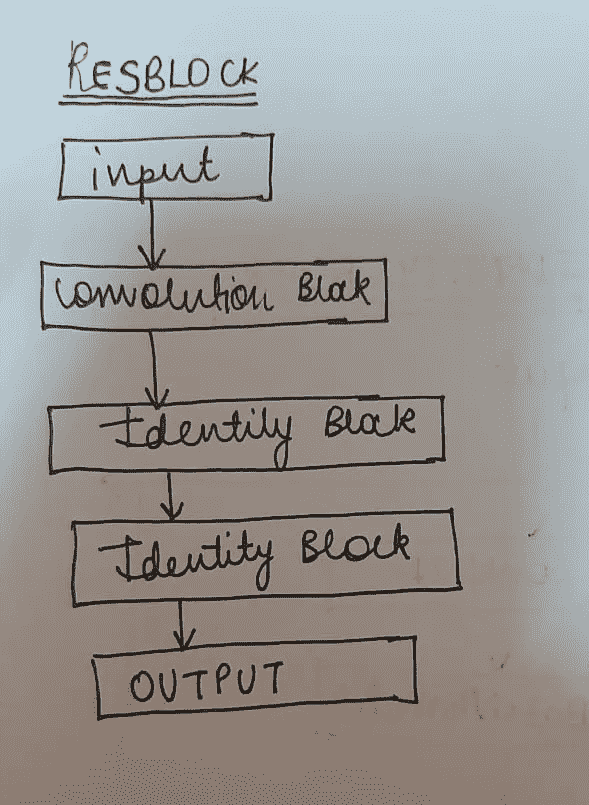 RESBLOCK
input
Convolution Block
Identity Block
Identity Block
OUTPUT